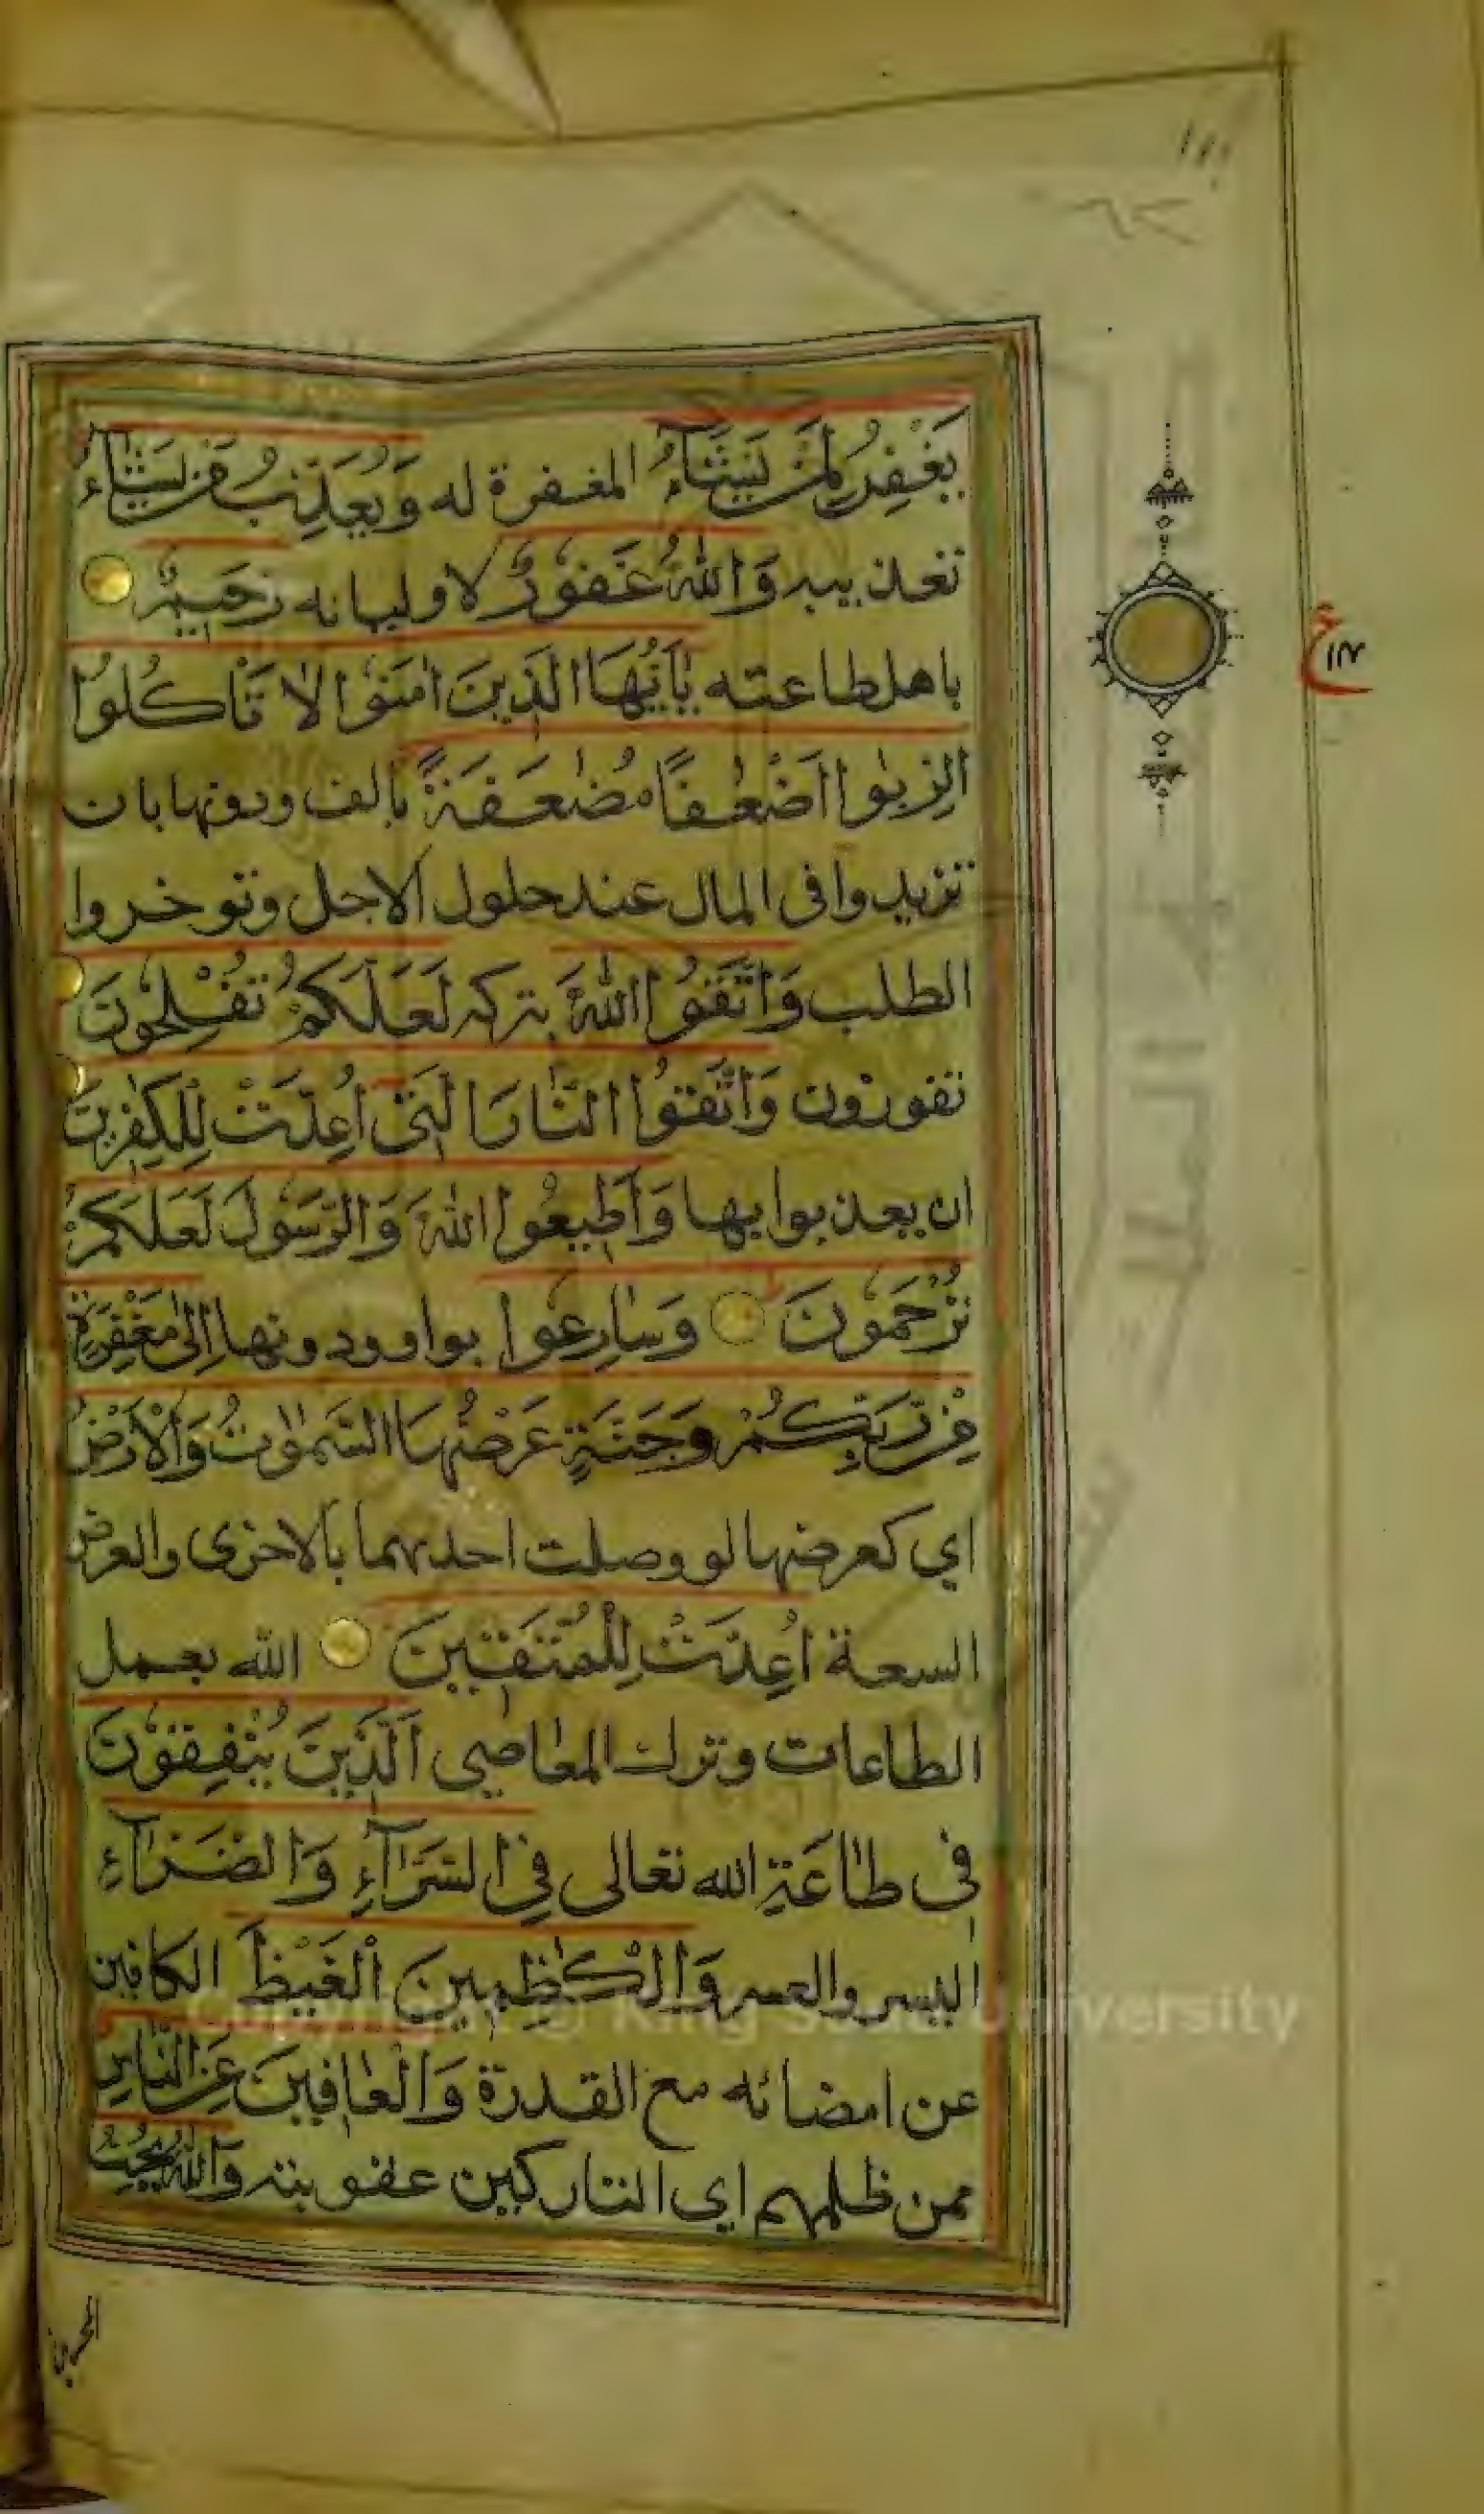 يَغْفِرُ لِمَنْ يَشَآءُ المغفرة له وَيُعَذِّبُ مَنْ يَشَآءُ
تعذيبه وَاللّٰهُ غَفُورٌ لاوليائه رَحِيمٌ
باهل طاعته يٰٓاَيُّهَا الَّذِينَ اٰمَنُوا لَا تَاْكُلُوا
الرِّبٰوا اَضْعَافًا مُضٰعَفَةً بالف ودونها بان
تزيدوا في المال عند حلول الاجل وتوخروا
الطلب وَاتَّقُوا اللّٰهَ بتركه لَعَلَّكُمْ تُفْلِحُونَ
تفوزون وَاتَّقُوا النَّارَ الَّتِي اُعِدَّتْ لِلْكٰفِرِينَ
ان يعذبوا بها وَاَطِيعُوا اللّٰهَ وَالرَّسُولَ لَعَلَّكُمْ
تُرْحَمُونَ وَسَارِعُوا بواو ودونها اِلٰى مَغْفِرَةٍ
مِنْ رَبِّكُمْ وَجَنَّةٍ عَرْضُهَا السَّمٰوٰتُ وَالْاَرْضُ
اي كعرضها لو وصلت احديهما بالاخرى والعرض
السعة اُعِدَّتْ لِلْمُتَّقِينَ الله بعمل
الطاعات وترك المعاصي اَلَّذِينَ يُنْفِقُونَ
في طاعة الله تعالى فِي السَّرَّآءِ وَالضَّرَّآءِ
اليسر والعسر وَالْكٰظِمِينَ الْغَيْظَ الكافين
عن امضائه مع القدرة وَالْعَافِينَ عَنِ النَّاسِ
ممن ظلمهم اي التاركين عقوبته وَاللّٰهُ يُحِبُّ
Copyright © King Saud University